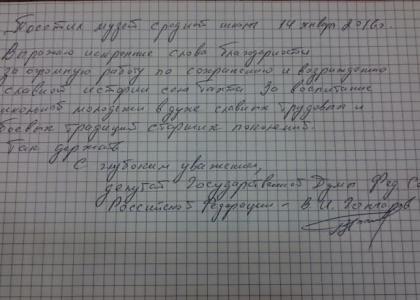 Посетил музей средней школы 14 января 2016г.
Выражаю искренние слова благодарности
за огромную работу по сохранению и возрождению
славной истории села Тахта За воспитание
школьной молодежи в духе славных трудовых и
боевых традиций старших поколений.
Так держать
С глубоким уважением,
депутат Государственной Думы Фед. Со
Российской Федерации - В.И. Гончаров